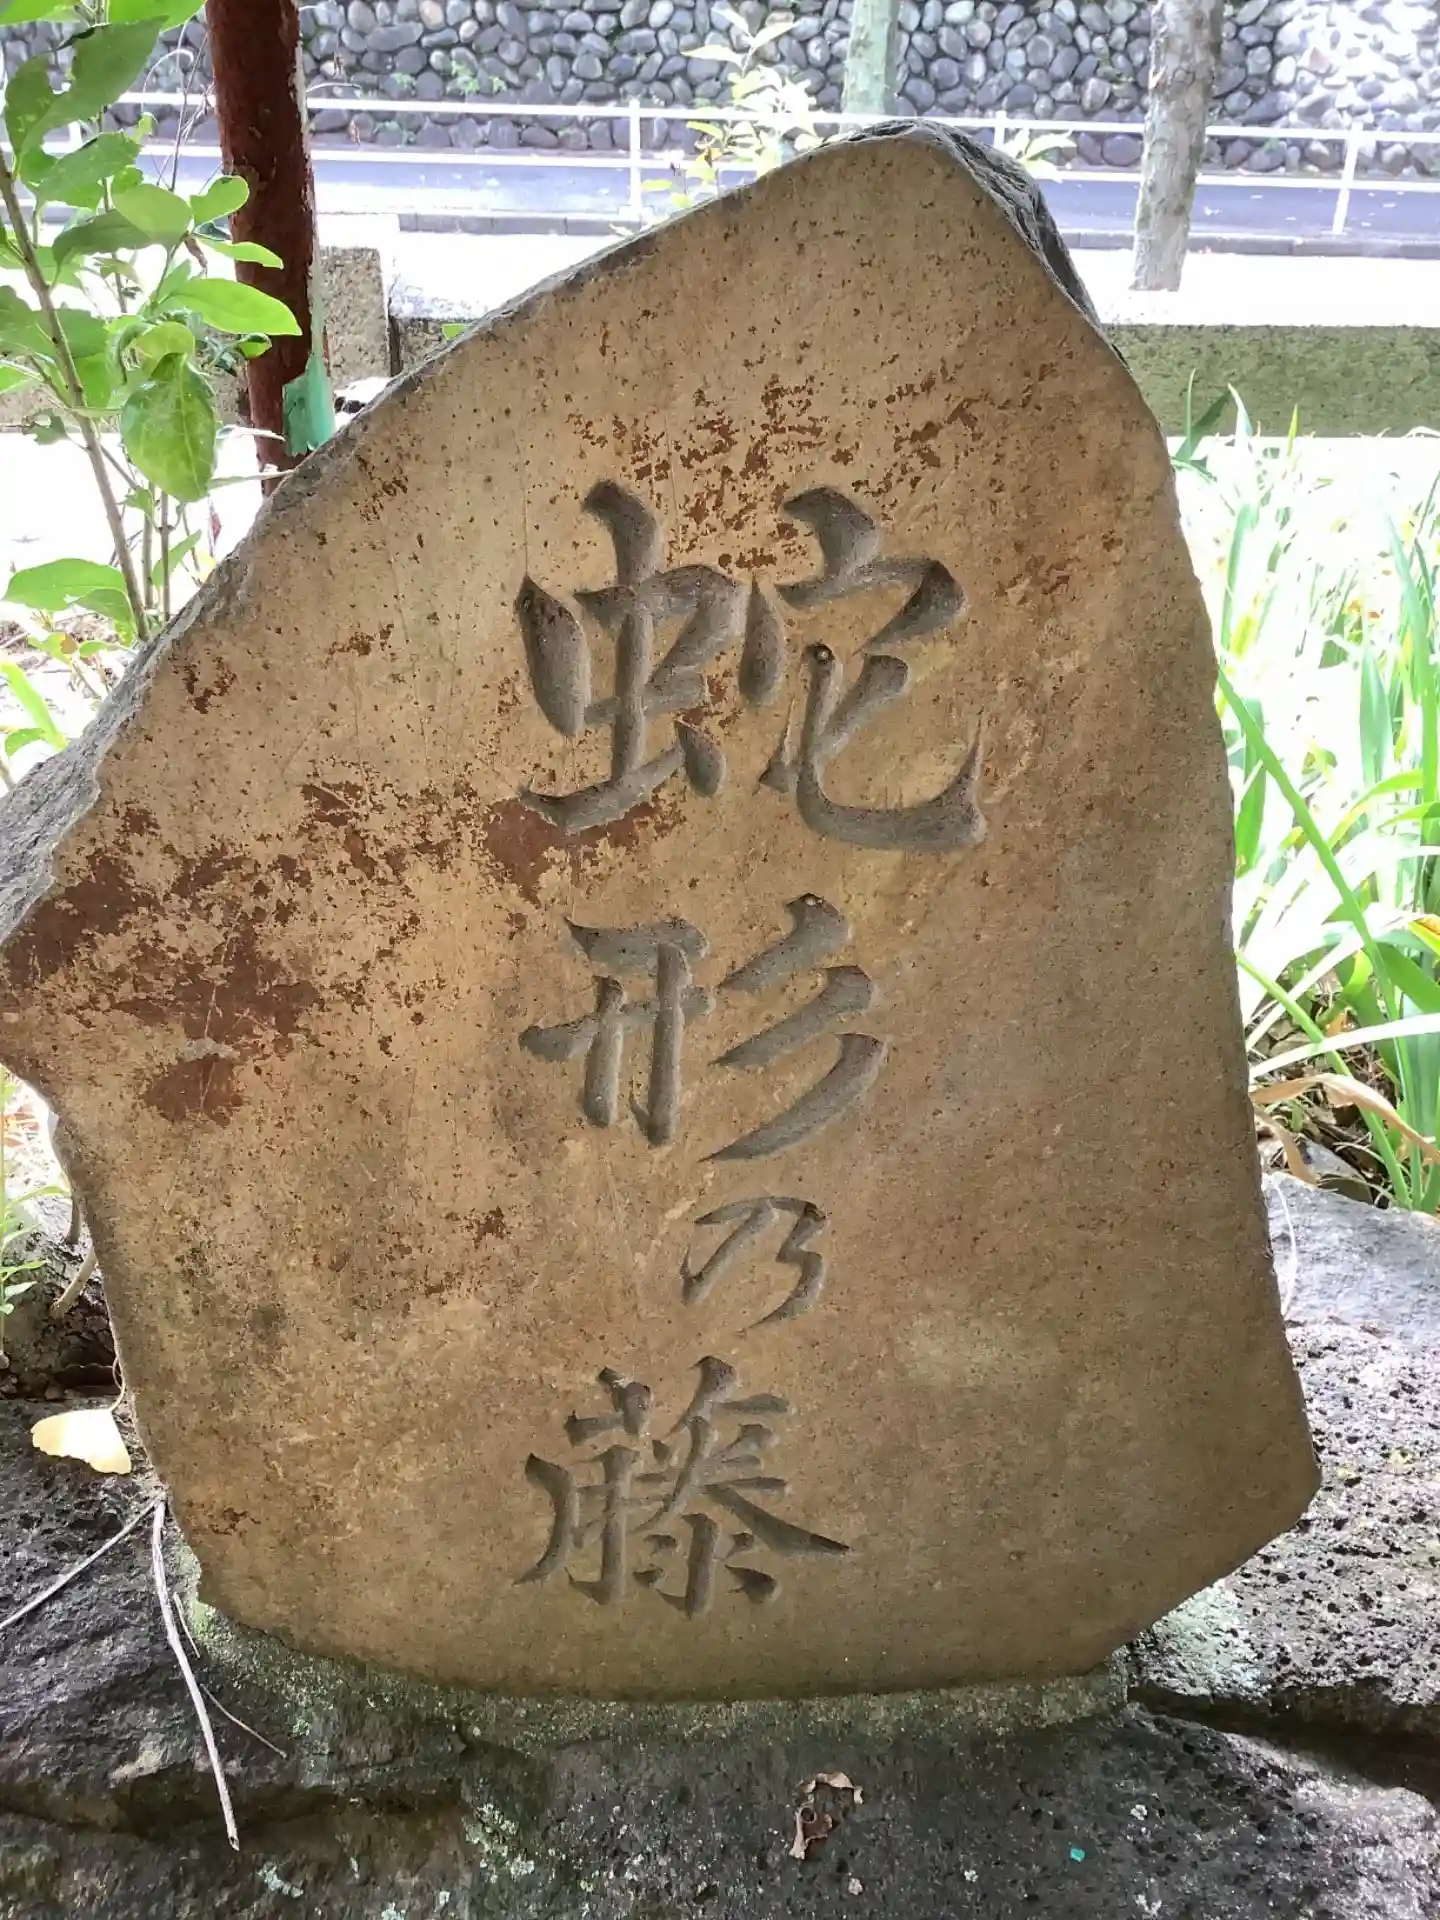 蛇形乃藤